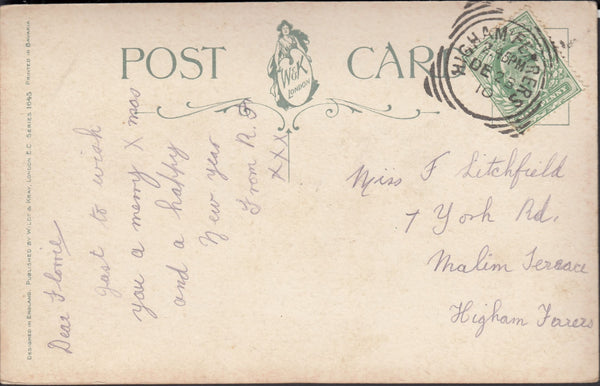 POST CARD
W&K
LONDON
HIGHAM FERRERS
DE 2
10
DESIGNED IN ENGLAND. PUBLISHED BY WILDT & KRAY, LONDON E.C. SERIES 1643 PRINTED IN BAVARIA.
Dear Florrie
Just to wish
you a merry X mas
and a happy
New year
From R. F
XXX
Miss F Litchfield
7 York Rd,
Malim Tereace
Higham Farers